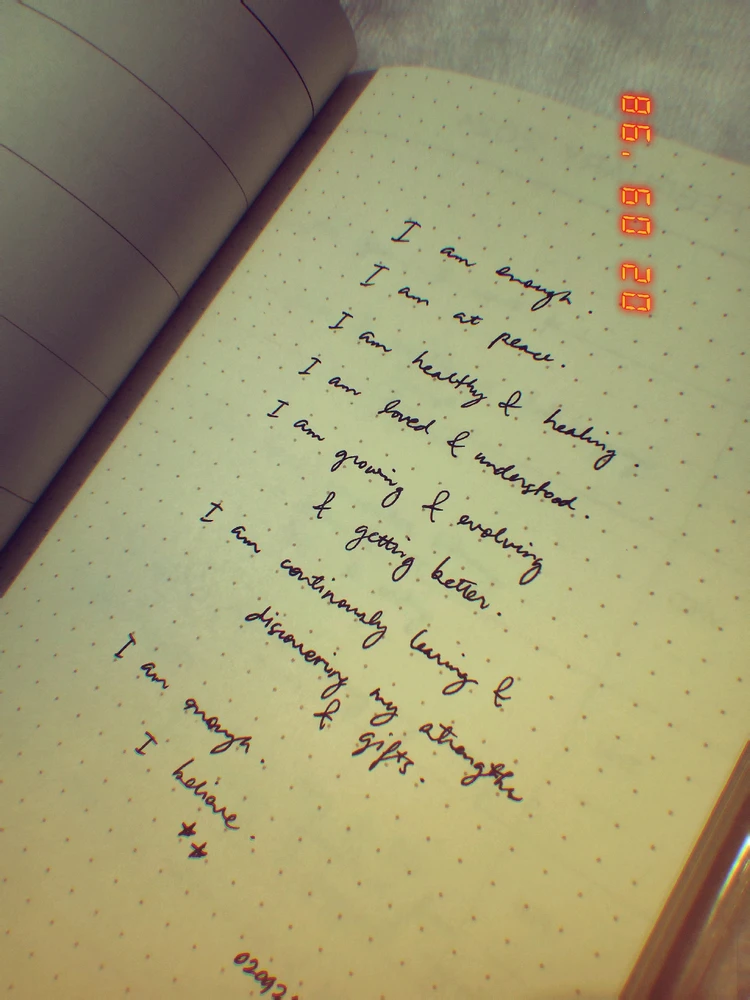 02 09 '98
I am enough.
I am at peace.
I am healthy & healing.
I am loved & understood.
I am growing & evolving
& getting better.
I am continously learning &
discovering my strengths
& gifts.
I am enough.
I believe.